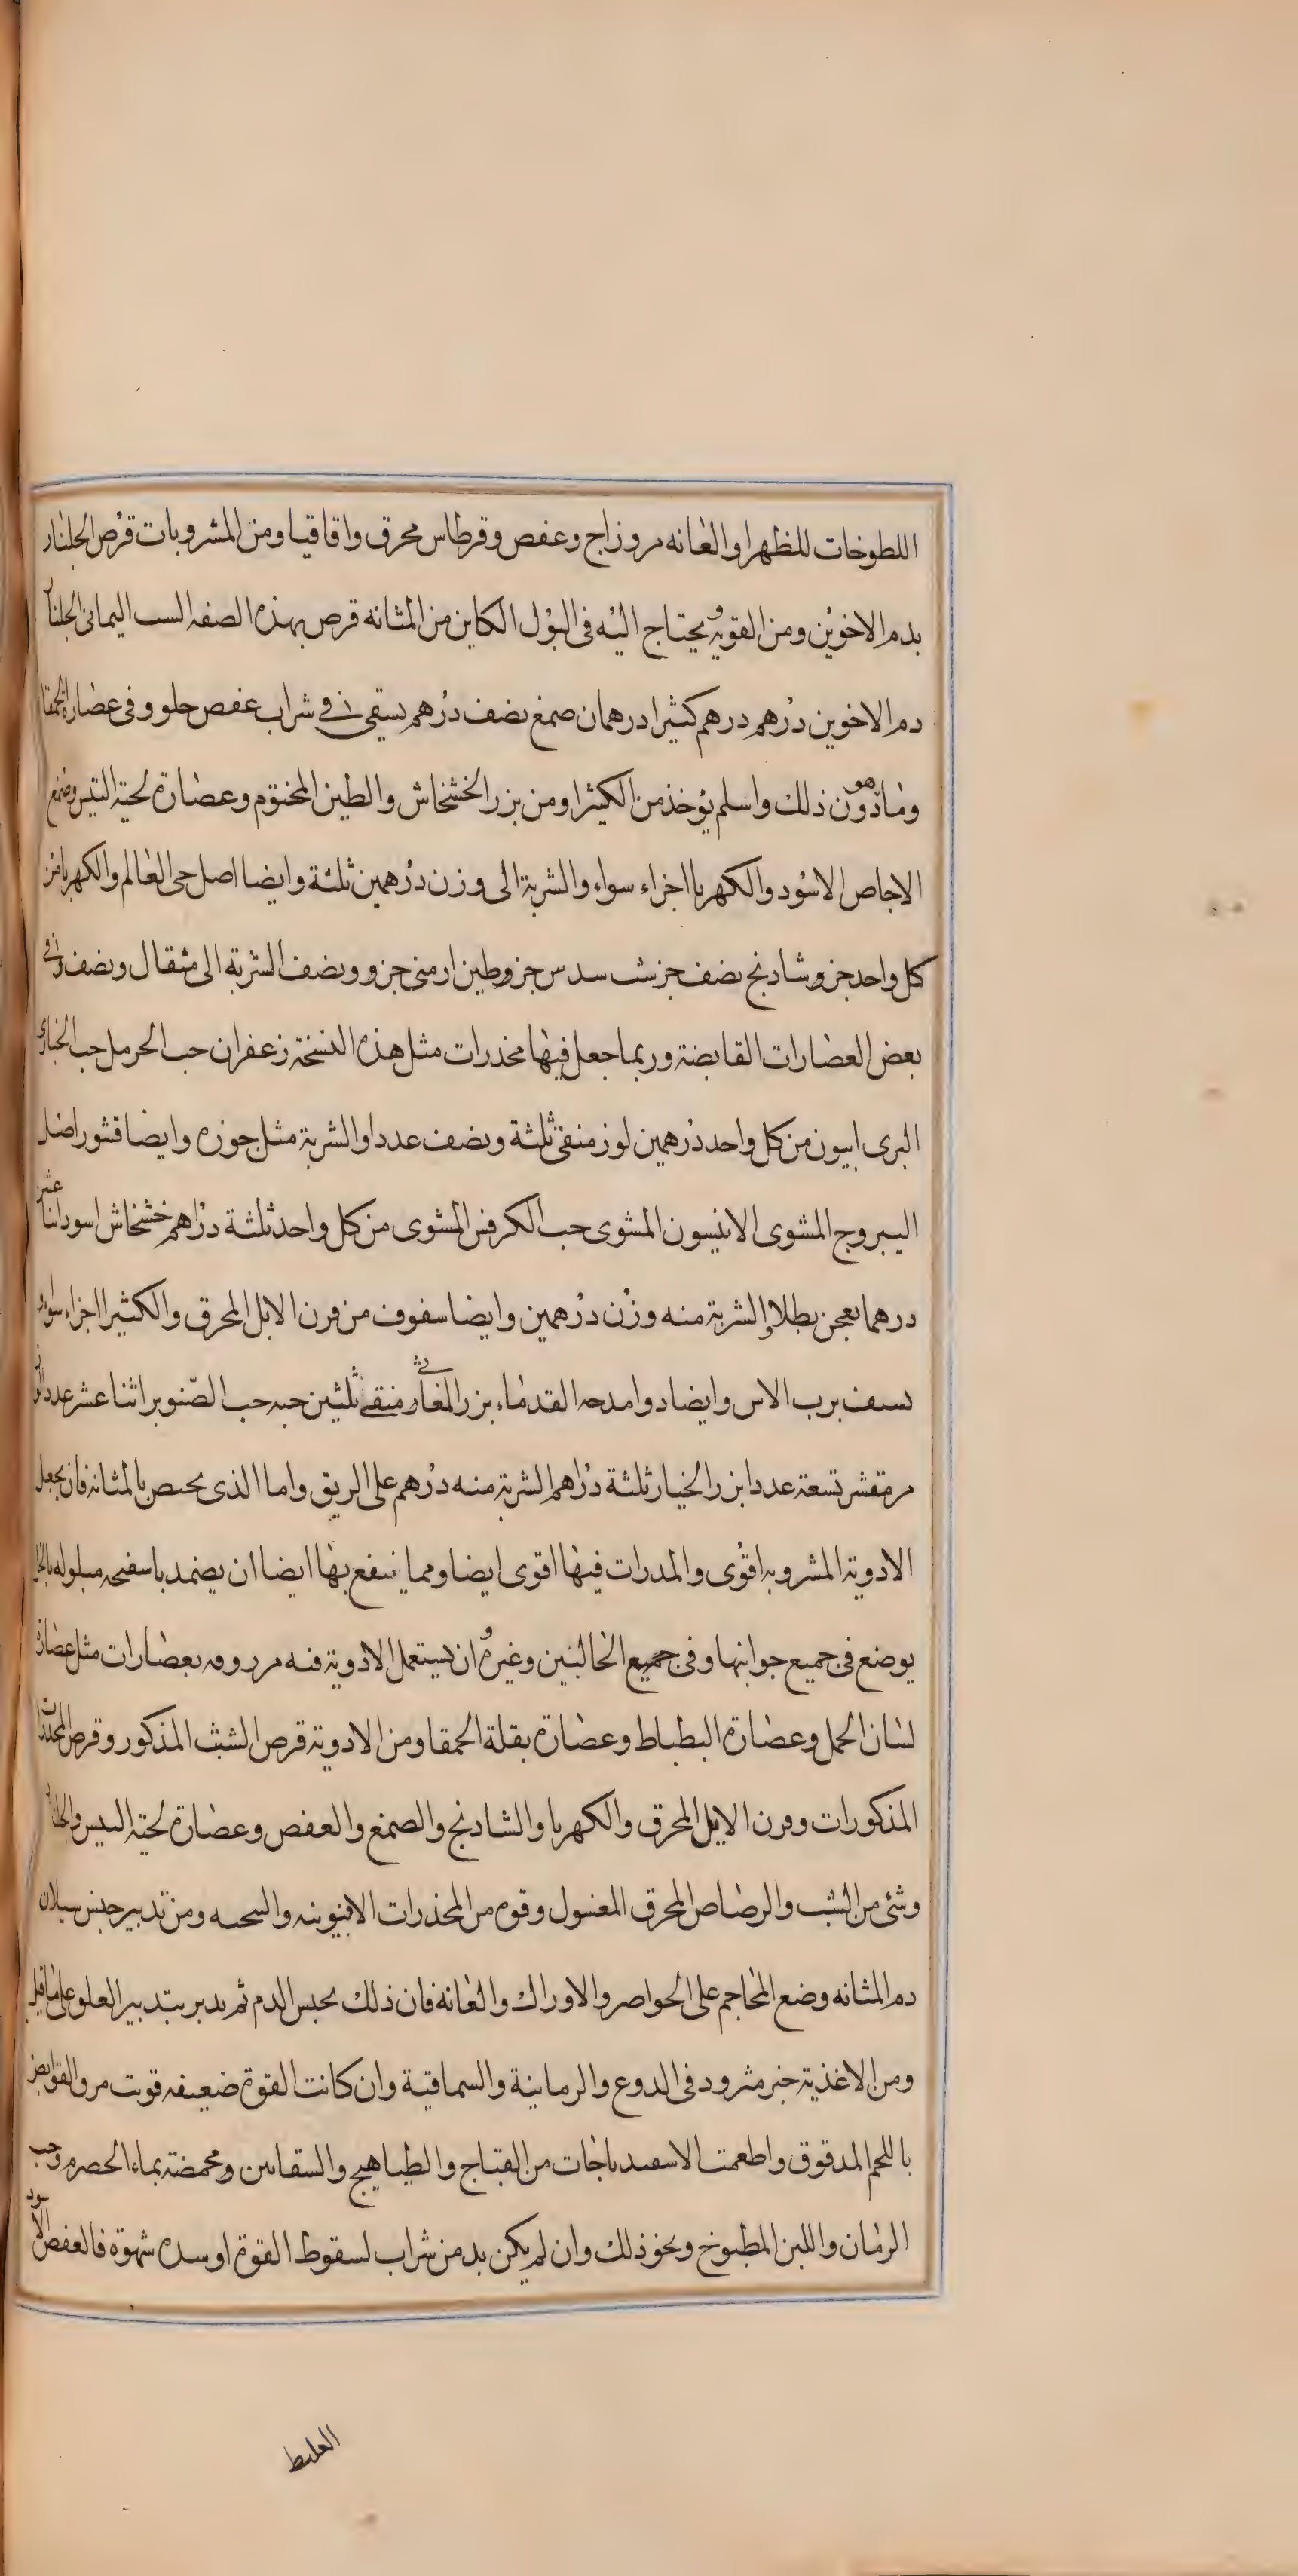 اللطوخات للظهر او العانه مر وزاج وعفص وقرطاس محرق واقاقيا ومن المشروبات قرص الجلنار
بدم الاخوين ومن القويه ويحتاج اليه فى البول الكاين من المثانه قرص بهذه الصفه السب اليمانى الجلنار
دم الاخوين درهم درهم كثيرا درهمان صمغ نصف درهم يسقى فى شراب عفص حلو وفى عصاره الحمقا
وما هو دون ذلك واسلم يؤخذ من الكثيرا ومن بزر الخشخاش والطين المختوم وعصارة لحية التيس وصمغ
الاجاص الاسود والكهربا اجزاء سواء والشربة الى وزن درهمين ثلثة وايضا اصل حى العالم والكهربا من
كل واحد جزو شادنج نصف جز شب سدس جز وطين ارمنى جزو ونصف الشربة الى مثقال ونصف فى
بعض العصارات القابضة وربما جعل فيها مخدرات مثل هذه النسخة زعفران حب الحرمل حب الخبازى
البرى ابيون من كل واحد درهمين لوز منقى ثلثة ونصف عددا والشربة مثل جوزه وايضا قشور اصل
اليبروج المشوى الانيسون المشوى حب الكرفس المشوى من كل واحد ثلثة دراهم خشخاش اسود اثنا عشر
درهما يعجن بطلا والشربة منه وزن درهمين وايضا سفوف من قرن الابل المحرق والكثيرا اجزاء سواء
يسف برب الاس وايضا دوا مدحه القدماء بزر المغاث منقى ثلثين حبه حب الصنوبر اثنا عشر عددا لوز
مر مقشر تسعة عددا بزر الخيار ثلثة دراهم الشربة منه درهم على الريق واما الذى يختص بالمثانه فان يجعل
الادوية المشروبه اقوى والمدرات فيها اقوى ايضا ومما ينتفع بها ايضا ان يضمد باسفنجه مبلوله بالخل
يوضع فى جميع جوانبها وفى جميع الحالبين وغيره وان يستعمل الادوية فيه مزروقه بعصارات مثل عصارة
لسان الحمل وعصارة البطباط وعصارة بقلة الحمقا ومن الادوية قرص الشب المذكور وقرص المخدرات
المذكورات وقرن الايل المحرق والكهربا والشادنج والصمغ والعفص وعصارة لحية التيس والجلنار
وشئ من الشب والرصاص المحرق المغسول وقوه من المخدرات الافيونيه والبنجيه ومن تدبير حبس سيلان
دم المثانه وضع المحاجم على الخواصر والاوراك والعانه فان ذلك يحبس الدم ثم يدبر بتدبير العلو على ما قيل
ومن الاغذية خبز مثرود فى الدوع والرمانية والسماقية وان كانت القوة ضعيفه قويت مرق القوابض
باللحم المدقوق واطعمت الاسفيدباجات من القباج والطياهيج والشفانين ومحمضة بماء الحصرم وحب
الرمان واللبن المطبوخ ونحو ذلك وان لم يكن بد من شراب لسقوط القوة او شده شهوة فالعفص الاسود
الغليظ